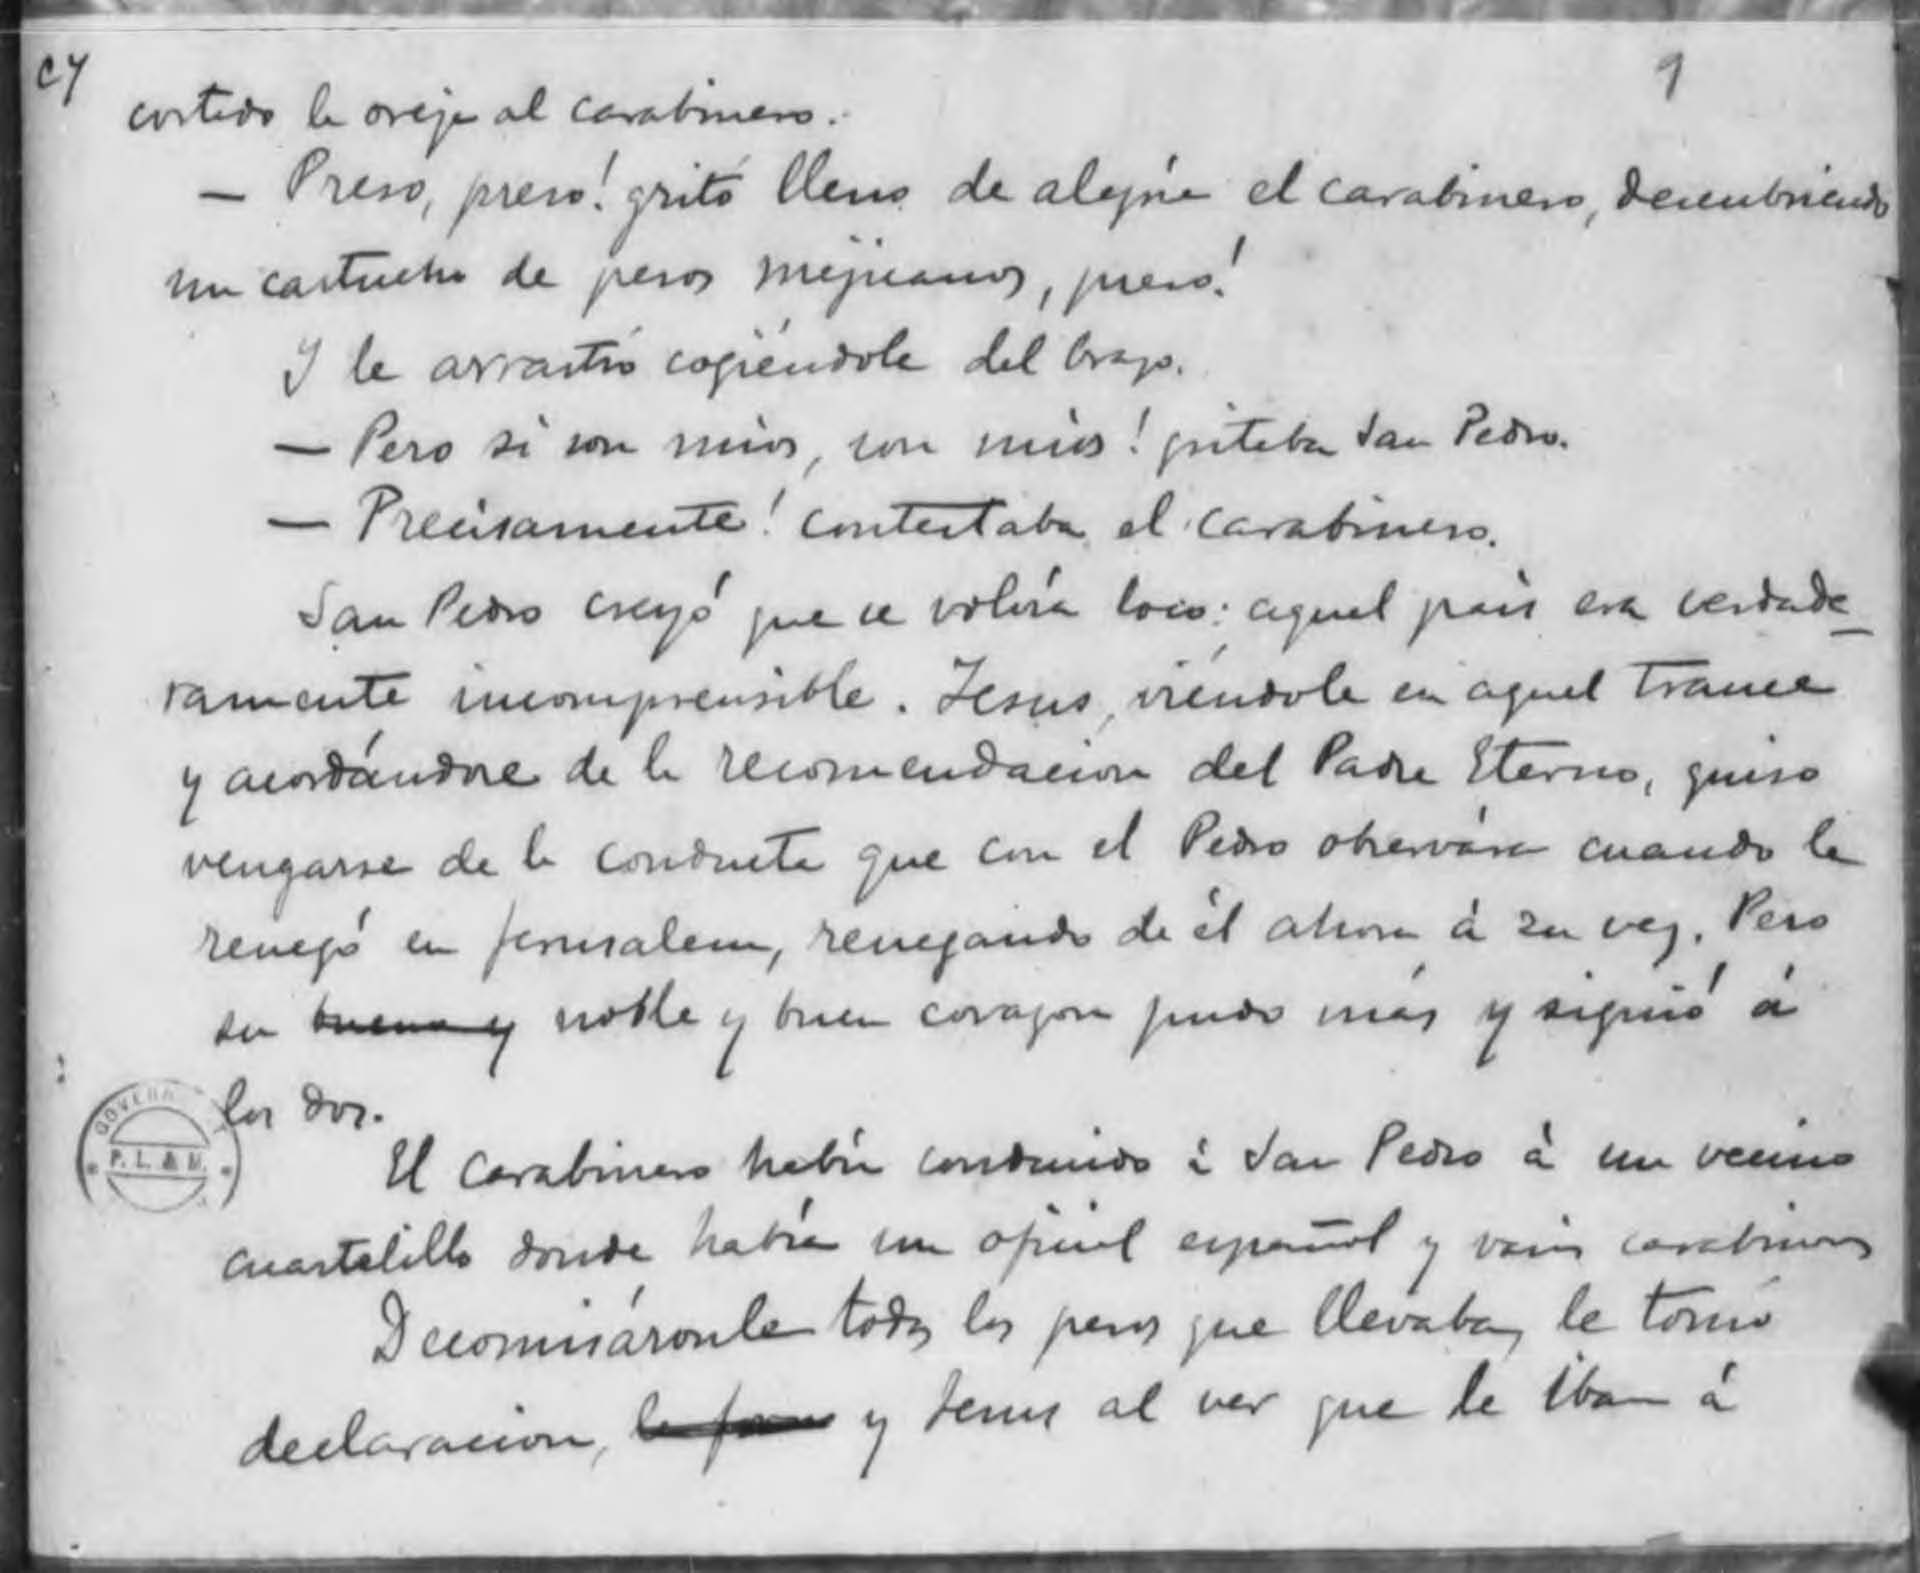 C7
9
cortado la oreja al carabinero.
— Preso, preso! gritó lleno de alegría el carabinero, descubriendo
un cartucho de pesos mejicanos, preso!
Y le arrastró cogiéndole del brazo.
— Pero si son mios, son mios! gritaba San Pedro.
— Precisamente! contestaba el carabinero.
San Pedro creyó que se volvía loco: aquel pais era verdade_
ramente incomprensible. Jesus, viéndole en aquel trance
y acordándose de la recomendacion del Padre Eterno, quiso
vengarse de la conducta que con el Pedro observára cuando le
renegó en Jerusalem, renegando de él ahora á su vez. Pero
su bueno y noble y buen corazon pudo más y siguió á
los dos.
GOVERN
P. L. & M.
El carabinero habia conducido á San Pedro á un vecino
cuartelillo donde había un oficial español y varios carabineros
Decomisáronle todos los pesos que llevaba, le tomó
declaracion, y Jesus al ver que le iban á